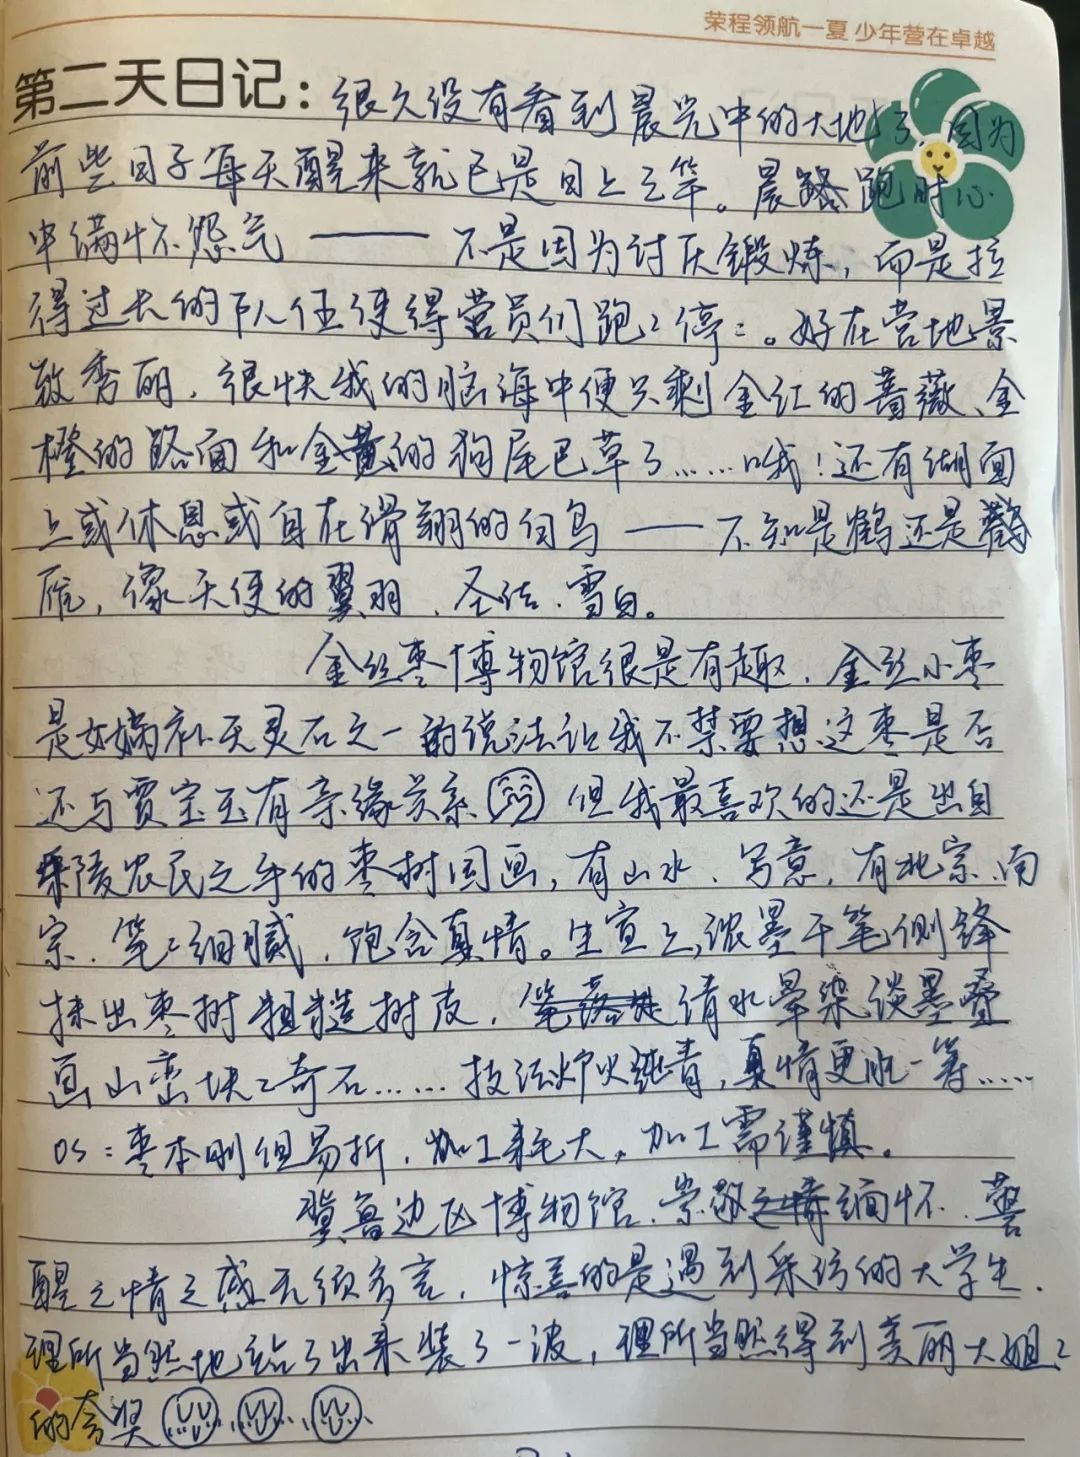 荣程领航一夏 少年营在卓越
第二天日记：很久没有看到晨光中的大地了,因为
前些日子每天醒来就已是日上三竿。晨跑时心
中满怀怨气——不是因为讨厌锻炼，而是拉
得过长的队伍使得营员们跑々停々。好在营地景
致秀丽，很快我的脑海中便只剩金红的蔷薇、金
橙的路面和金黄的狗尾巴草了……哦！还有湖面
上或休息或自在滑翔的白鸟——不知是鹤还是鹳
雁，像天使的翼羽，圣洁、雪白。
金丝枣博物馆很是有趣，金丝小枣
是女娲补天灵石之一的说法让我不禁要想这枣是否
还与贾宝玉有亲缘关系 但我最喜欢的还是出自
乐陵农民之手的枣树国画，有山水、写意，有北宗、南
宗，笔々细腻，饱含真情。生宣之上浓墨干笔侧锋
抹出枣树粗糙树皮，清水晕染淡墨叠
画山峦块々奇石……技法炉火纯青，真情更胜一筹……
OS：枣木刚但易折，加工耗大，加工需谨慎。
冀鲁边区博物馆，崇敬缅怀、警
醒之情之感无须多言，惊喜的是遇到采访的大学生，
理所当然地 了出来装了一波，理所当然得到美丽大姐々
的夸奖